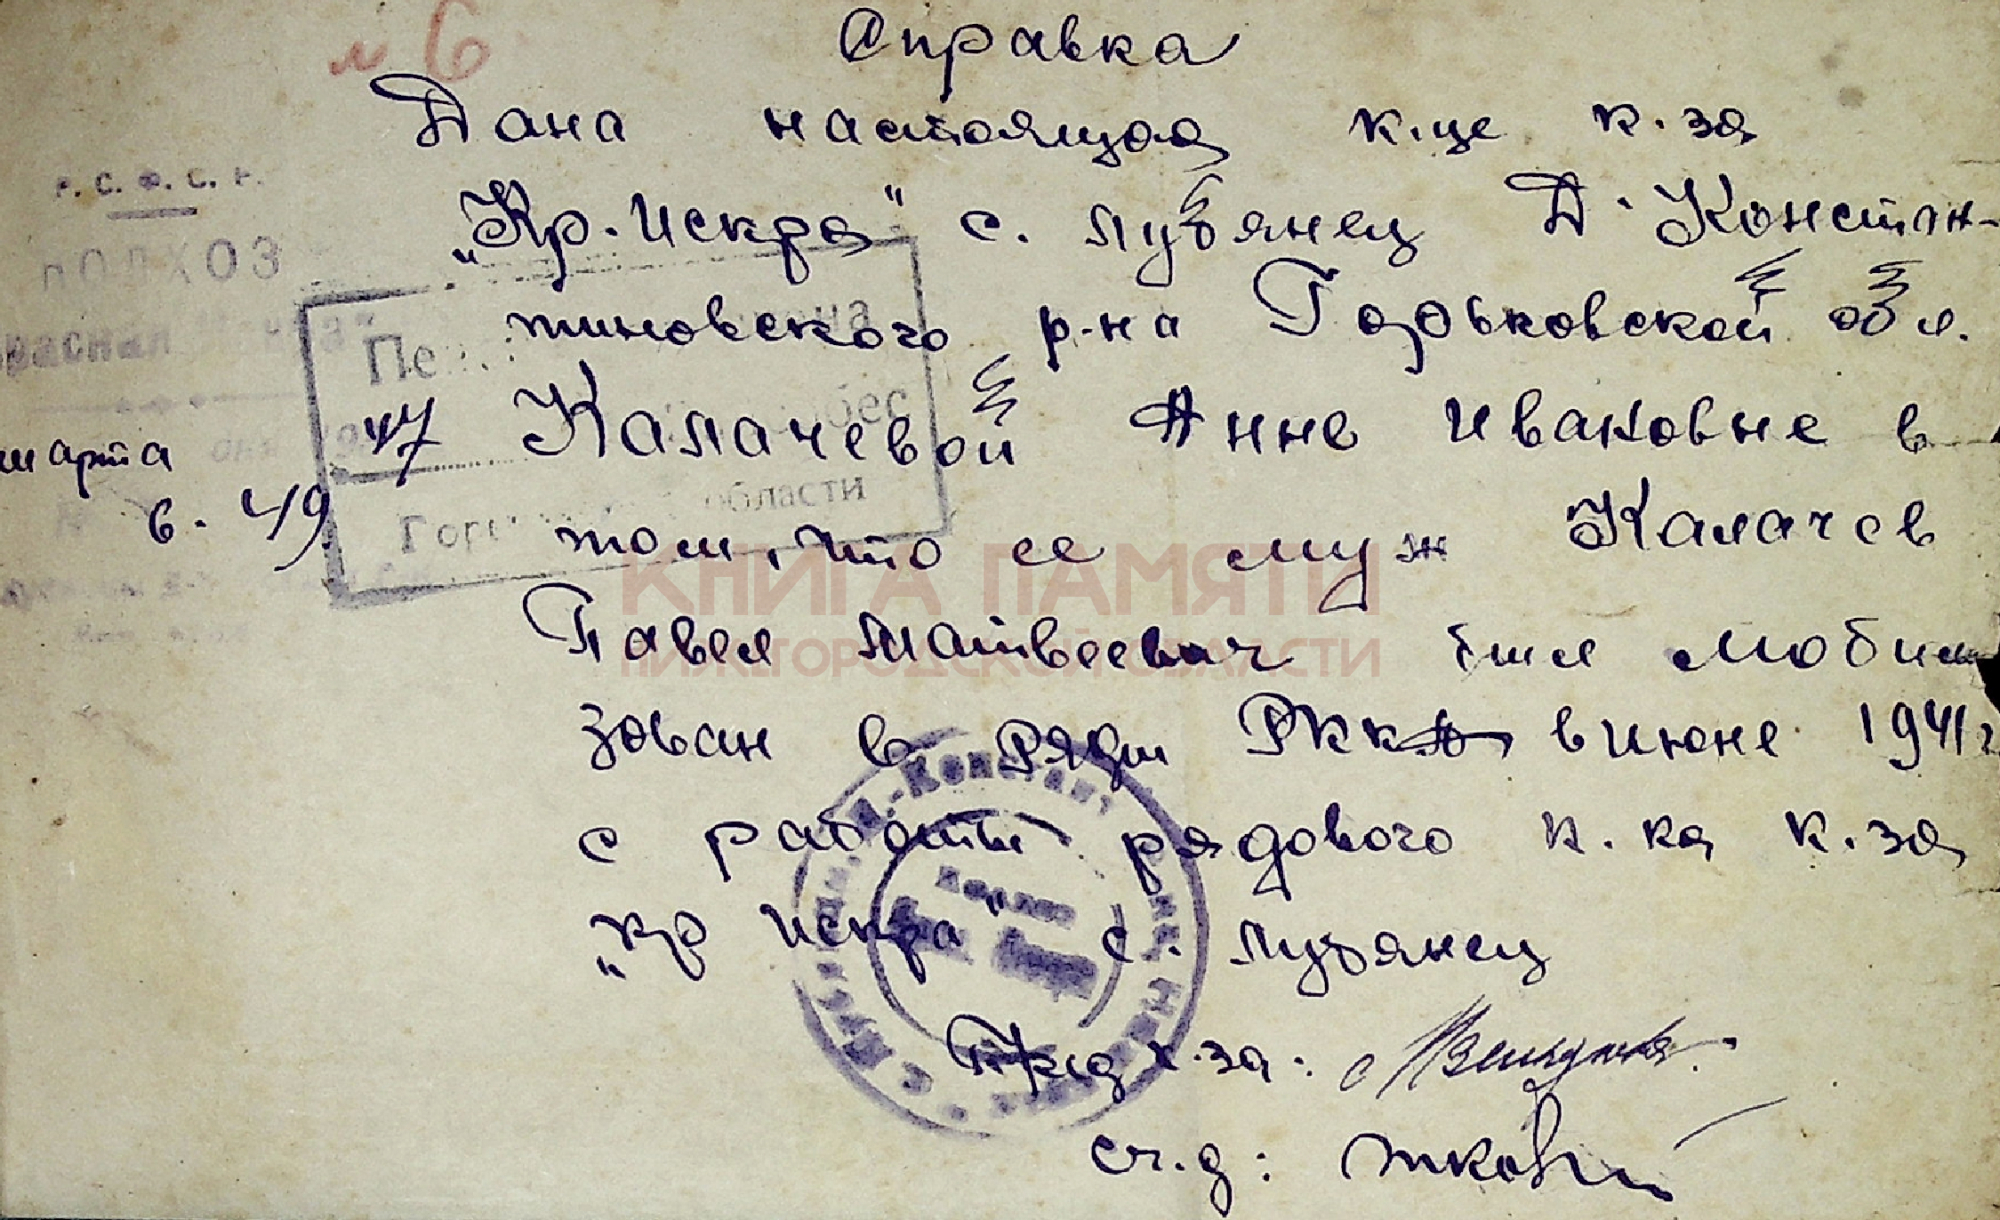 № 6
Справка
Дана настоящая к.це к.за
„Кр. Искра" с. Лубянец Д. Констан-
тиновского р-на Горьковской обл.
Калачевой Анне Ивановне в
том, что ее муж Калачев
Павел Матвеевич был мобили
зован в ряды РККА в июне 1941 г
с работы рядового к.ка к.за
„Кр Искра" с. Лубянец
Пред к.за:
сч.д:
Р. С. Ф. С. Р.
КОЛХОЗ
марта 47
6. 49
области
КНИГА ПАМЯТИ
НИЖЕГОРОДСКОЙ ОБЛАСТИ